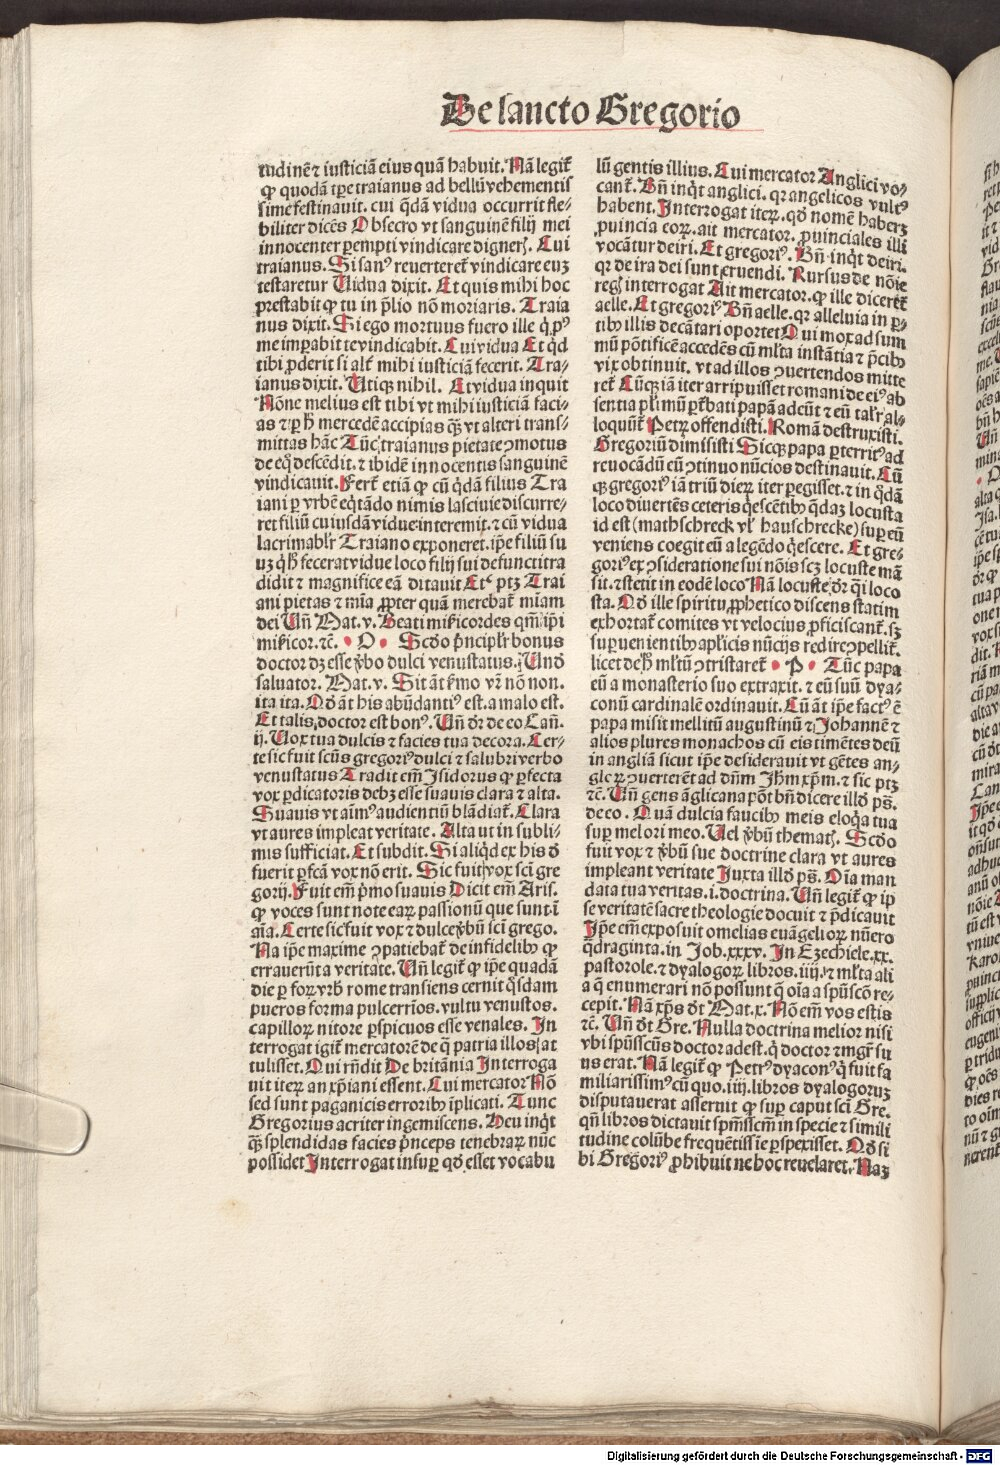 De sancto Gregorio
tudinē ⁊ iusticiā eius quā habuit. Nā legit᷑
ꝙ quodā tꝑe traianus ad bellū vehementis
sime festinauit. cui q̄dā vidua occurrit fle⸗
biliter dicēs Obsecro vt sanguinē filij mei
innocenter ꝑempti vindicare digneris. Cui
traianus. Si sanꝰ reuerteret᷑ vindicare euꝫ
testaretur Uidua dixit. Et quis mihi hoc
p̄stabit ꝙ tu in p̄lio nō moriaris. Traia
nus dixit. Si ego mortuus fuero ille q̇ pꝰ
me imꝑabit te vindicabit. Cui vidua Et qd̄
tibi ꝓderit si alt᷑ mihi iusticiā fecerit. Tra⸗
ianus dixit. Utiqꝫ nihil. At vidua inquit
Nōne melius est tibi vt mihi iusticiā faci⸗
as ⁊ ꝑ hͦ mercedē accipias qꝫ̄ vt alteri trans⸗
mittas hāc Tūc traianus pietate ꝯmotus
de eq̊ descēdit. ⁊ ibidē innocentis sanguinē
vindicauit. Fert᷑ etiā ꝙ cū q̇dā filius Tra
iani ꝑ vrbē eq̇tādo nimis lasciuie discurre⸗
ret filiū cuiusdā vidue interemit. ⁊ cū vidua
lacrimabl'r Traiano exponeret. ip̄e filiū su
uꝫ q̇ hͦ fecerat vidue loco filij sui defuncti tra
didit ⁊ magnifice eā ditauit Etc̄ ptꝫ Trai
ani pietas ⁊ mīa ꝓpter quā merebat᷑ mīam
dei Uñ Mat. v. Beati mīsericordes qm̄ ip̄i
mīsericor. ⁊c̄. • O • Scd̄o p̄ncipl'r bonus
doctor dꝫ esse v̄bo dulci venustatus. Und̄
saluator. Mat. v. Sit āt s̄mo vr̄ nō non.
ita ita. Qd̄ āt his abūdantiꝰ est. a malo est.
Et talis doctor est bonꝰ. Uñ dr̄ de eo Cañ.
ij. Uox tua dulcis ⁊ facies tua decora. Cer⸗
te sic fuit scūs gregoriꝰ dulci ⁊ salubri verbo
venustatus Tradit em̄ Isidorus ꝙ ꝑfecta
vox p̄dicatoris debꝫ esse suauis clara ⁊ alta.
Suauis vt aīmꝰ audientiū blādiat᷑. Clara
vt aures impleat veritate. Alta ut in subli⸗
mis sufficiat. Et subdit. Si aliq̇d ex his d̄
fuerit ꝑfcā vox nō erit. Sic fuit vox scī gre
gorij. Fuit em̄ p̄mo suauis Dicit em̄ Aris.
ꝙ voces sunt note eaꝝ passionū que sunt ī
aīa. Certe sic fuit vox ⁊ dulce v̄bū scī grego.
Na ip̄e maxime ꝯpatiebat᷑ de infidelibꝫ ꝙ
errauerūt a veritate. Uñ legit᷑ ꝙ ip̄e quadā
die ꝑ foꝝ vrbis rome transiens cernit q̇sdam
pueros forma pulcerrios. vultu venustos.
capilloꝝ nitore ꝑspicuos esse venales. In
terrogat igit᷑ mercatorē de q̄ patria illos at
tulisset. Qui rn̄dit De britānia Interroga
uit iteꝝ an xp̄iani essent. Cui mercator Nō
sed sunt paganicis erroribꝫ īplicati. Tunc
Gregorius acriter ingemiscens. Heu inq̇t
qꝫ̄ splendidas facies p̄nceps tenebraꝝ nūc
possidet Interrogat insuꝑ qd̄ esset vocabu
lū gentis illius. Cui mercator Anglici vo⸗
cant᷑. Bñ inq̇t anglici. qꝛ angelicos vultꝰ
habent. Interrogat iteꝝ. qd̄ nomē haberꝫ
ꝓuincia eoꝝ. ait mercator. ꝓuinciales illi
vocātur deiri. Et gregoriꝰ. Bñ inq̇t deiri.
qꝛ de ira dei sunt eruendi. Rursus de nōīe
regis interrogat Ait mercator. ꝙ ille diceret᷑
aelle. Et gregoriꝰ Bñ aelle. qꝛ alleluia in ꝑ⸗
tibꝫ illis decātari oportet Qui mox ad sum
mū pōtificē accedēs cū ml'ta instātia ⁊ p̄cibꝫ
vix obtinuit. vt ad illos ꝯuertendos mitte
ret᷑ Cūqꝫ iā iter arripuisset romani de eiꝰ ab
sentia pl'imū ꝑt᷑bati papā adeūt ⁊ eū tal'r al⸗
loquūt᷑ Petꝝ offendisti. Romā destruxisti.
Gregoriū dimisisti Sicqꝫ papa ꝑterritꝰ ad
reuocādū eū ꝯtinuo nūcios destinauit. Cū
qꝫ gregoriꝰ iā triū dieꝝ iter ꝑegisset. ⁊ in q̇dā
loco diuertēs ceteris q̇escētibꝫ q̄daꝫ locusta
id est (mathschreck vl' hauschrecke) suꝑ eū
veniens coegit eū a legēdo q̇escere. Et gre⸗
goriꝰ ex ꝯsideratione sui nōis scꝫ locuste mā
sit. ⁊ stetit in eodē loco Nā locuste dr̄ q̇i loco
sta. Qd̄ ille spiritu ꝓphetico discens statim
exhortat᷑ comites vt velocius ꝓficiscant᷑. sꝫ
suꝑuenientibꝫ apl'icis nūcijs redire ꝯpellit᷑.
licet de hͦ ml'tū ꝯtristaret᷑ • P • Tūc papa
eū a monasterio suo extraxit. ⁊ eū suū dya⸗
conū cardinalē ordinauit. Cū āt ip̄e factꝰ ē
papa misit mellitū augustinū ⁊ Johannē ⁊
alios plures monachos cū eis timētes deū
in angliā sicut ip̄e desiderauit vt gētes an⸗
gloꝝ ꝯuerterēt ad dn̄m Jhm̄ xp̄m. ⁊ sic ptꝫ
⁊c̄. Uñ gens āglicana pōt bn̄ dicere illd̄ ps̄.
de eo. Quā dulcia faucibꝫ meis eloq̇a tua
suꝑ mel ori meo. Uel v̄bū thematis. Scd̄o
fuit vox ⁊ v̄bū sue doctrine clara vt aures
impleant veritate Juxta illd̄ ps̄. Oīa man
data tua veritas. i. doctrina. Uñ legit᷑ ꝙ ip
se veritatē sacre theologie docuit ⁊ p̄dicauit
Ip̄e em̄ exposuit omelias euāgelioꝝ nūero
q̄draginta. in Job. xxxv. In Ezechiele. xx.
pastorole. ⁊ dyalogoꝝ libros. iiij. ⁊ ml'ta ali
a q̄ enumerari nō possunt q̄ oīa a spūscō re⸗
cepit. Nā xp̄s dt̄ Mat. x. Nō em̄ vos estis
⁊c̄. Uñ dt̄ Gre. Nulla doctrina melior nisi
vbi spūsscūs doctor adest. q̇ doctor ⁊ mgr̄ su
us erat. Nā legit᷑ ꝙ Petrꝰ dyaconꝰ q̇ fuit fa
miliarissimꝰ cū quo. iiij. libros dyalogoruꝫ
disputauerat asseruit ꝙ suꝑ caput scī Gre.
qn̄ libros dictauit spm̄sscm̄ in specie ⁊ simili
tudine colūbe frequētissīe ꝑspexisset. Qd̄ si
bi Gregoriꝰ ꝓhibuit ne hoc reuelaret. Naꝫ
Digitalisierung gefördert durch die Deutsche Forschungsgemeinschaft - DFG